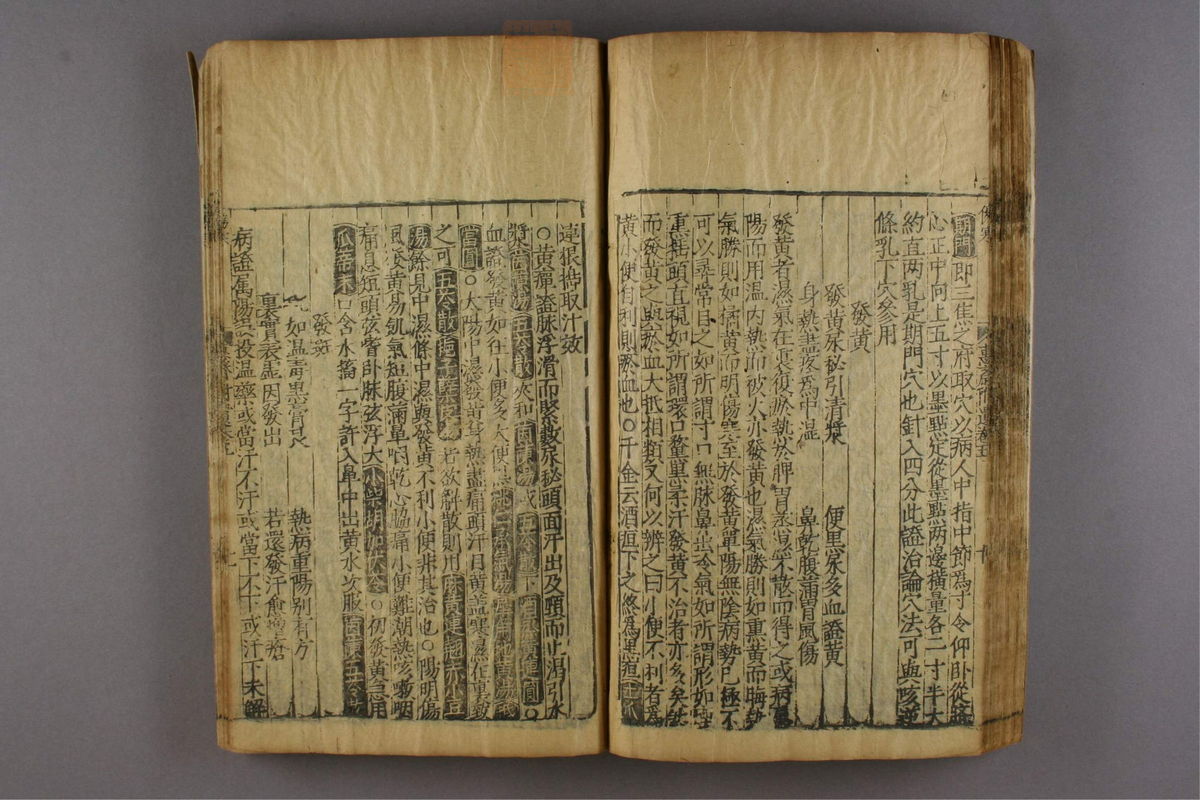 期門即三隹之府取穴以病人中指中節爲寸令仰卧從臍
心正中向上五寸以墨點定從墨點两邊橫量各二寸半大
約直两乳是期門穴也針入四分此證治論穴法可與咳逆
條乳下穴參用
發黄
發黄尿秘引清漿 便黒尿多血證黄
身熱盡疼爲中湿 鼻乾腹滿胃風傷
發黄者濕氣在裏復瘀熱於脾胃蒸濕不散而得之或病
陽而用温内熱而被火亦發黄也濕氣勝則如熏黄而晦熱
氣勝則如橘黄而明傷寒至於發黄單陽無陰病勢已極不
可以尋常目之如所謂寸口無脉鼻出冷氣如所謂形如
熏揺頭直視如所謂環口黧黒柔汗發黄不治者亦多矣
而發黄之與瘀血大抵相類又何以辨之曰小便不利者爲
黄小便自利則瘀血也○千金云酒疸下之久爲黒疸
連根搗取汁效
○黄癉證脉浮滑而緊數尿秘頭面汗出及頸而止渴引水
漿茵蔯湯五苓散夾和茵蔯湯或五苓
血證發黄如狂小便多大便黒桃仁承氣湯
○太陽中濕發黄身熱盡痛頭汗目黄盖寒濕在裏致
之可五苓散 若欲解散則用麻黄連翹赤小豆
湯餘見中濕條中濕與發黄不利小便非其治也○陽明傷
風發黄易飢氣短腹滿鼻咽乾心脇痛小便難潮熱咳嗽咽
痛息短頭弦嗜卧脉弦浮大小柴胡加茯苓○初發黄急用
瓜蒂末口含水搐一字許入鼻中出黄水次服茵蔯五苓
發斑
如温毒 熱病重陽别有方
裏實表虚因發出 若還發汗愈增瘡
病證属陽投温藥或當汗不汗或當下不下或汗下未解